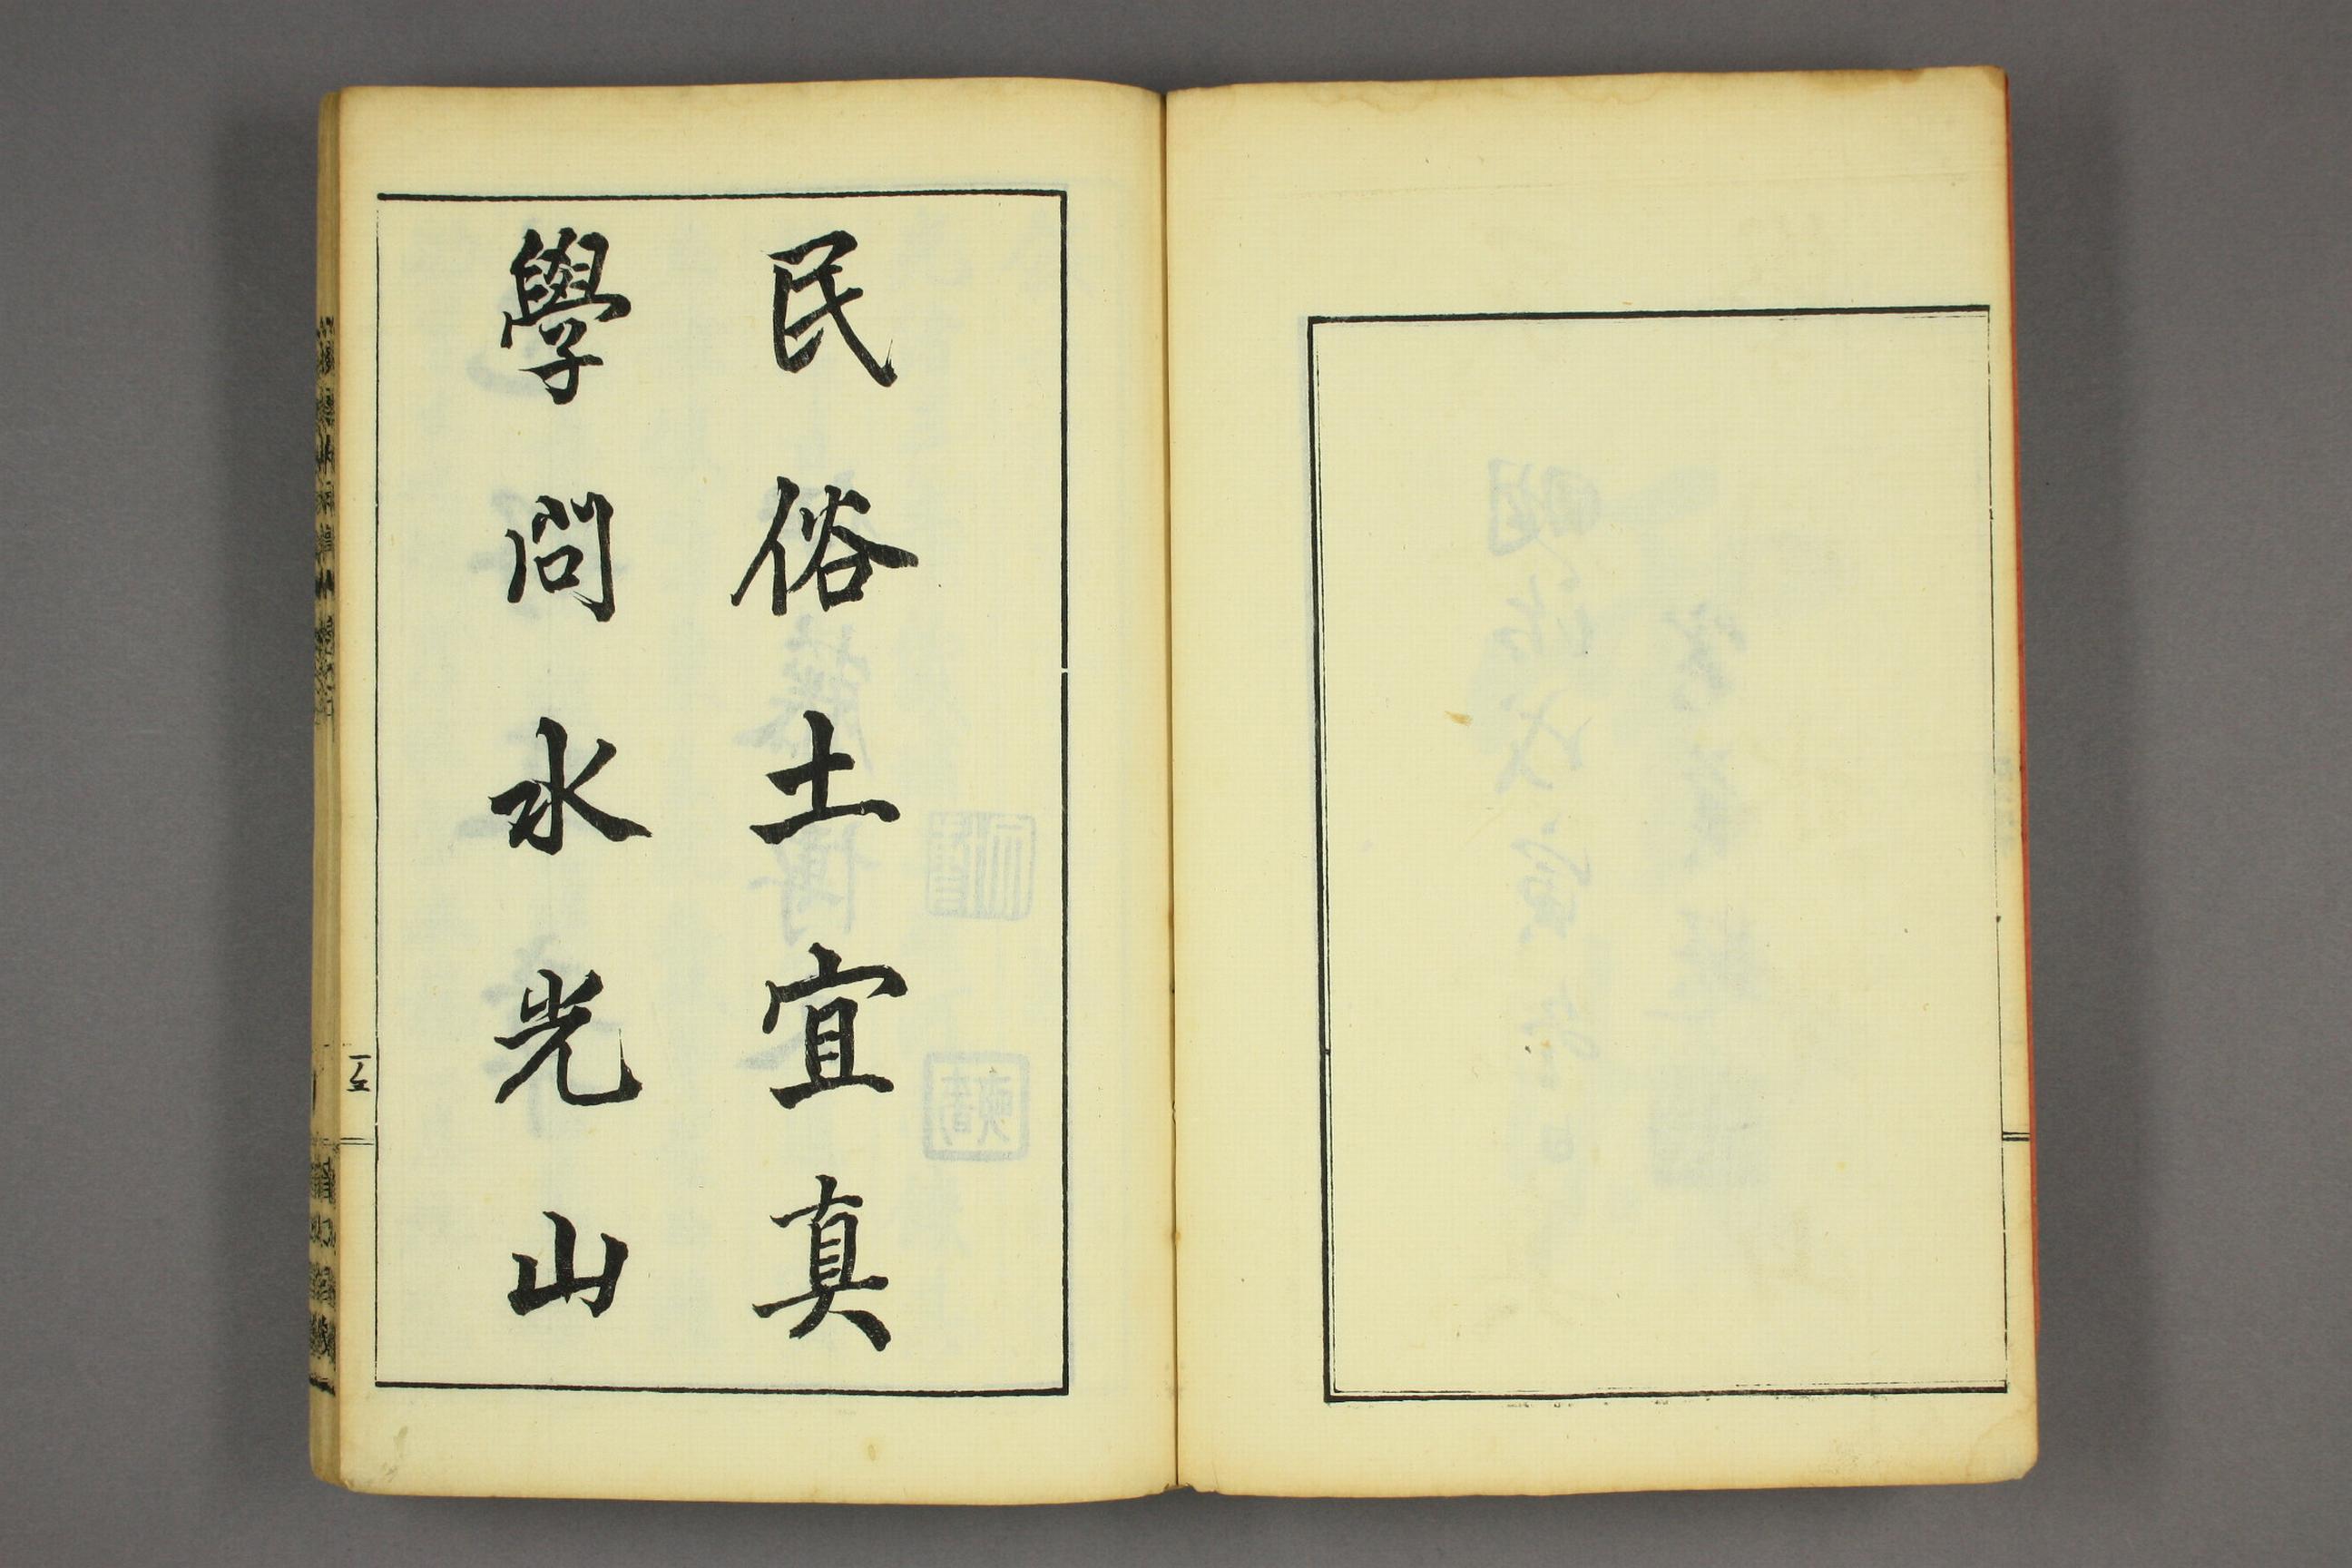 民俗土宜真
學問水光山